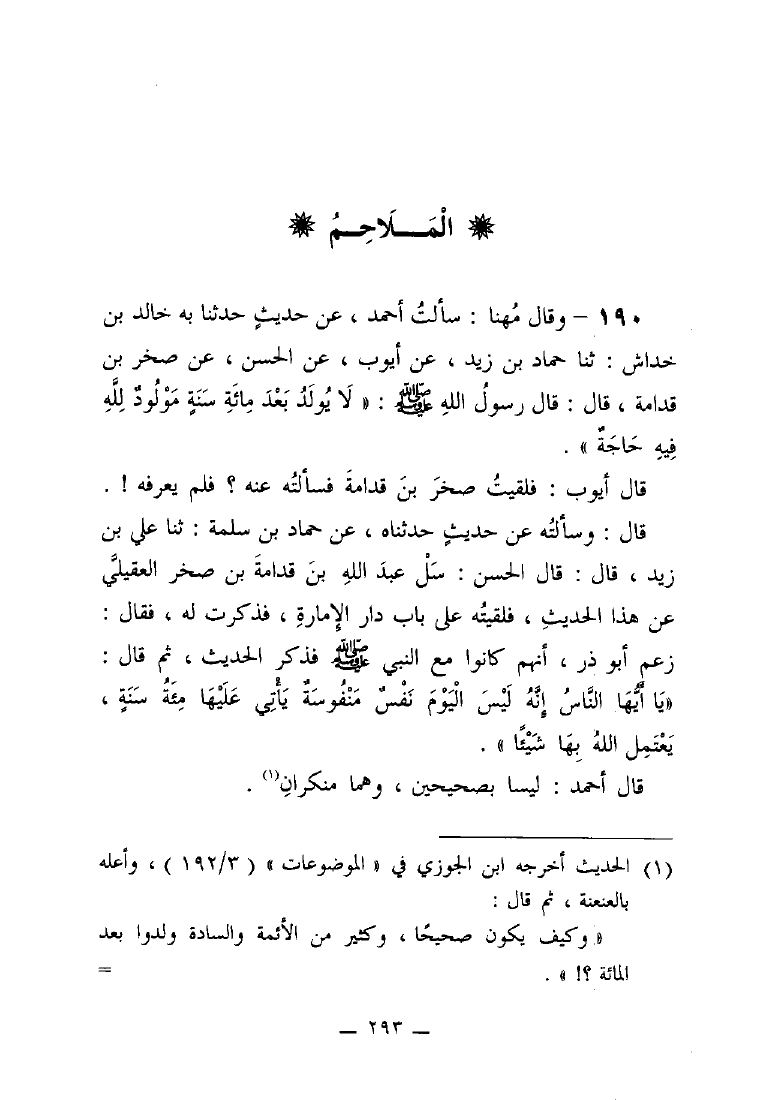 * الْمَـــلَاحِـمُ *
١٩٠ – وقال مُهنا : سألتُ أحمد ، عن حديثٍ حدثنا به خالد بن
خداش : ثنا حماد بن زيد ، عن أيوب ، عن الحسن ، عن صخر بن
قدامة ، قال : قال رسولُ اللهِ ﷺ : « لَا يُولَدُ بَعْدَ مِائَةِ سَنَةٍ مَوْلُودٌ لِلَّهِ
فِيهِ حَاجَةٌ » .
قال أيوب : فلقيتُ صخرَ بنَ قدامةَ فسألتُه عنه ؟ فلم يعرفه ! .
قال : وسألتُه عن حديثٍ حدثناه ، عن حماد بن سلمة : ثنا علي بن
زيد ، قال : قال الحسن : سَلْ عبدَ اللهِ بنَ قدامةَ بن صخر العقيليَّ
عن هذا الحديثِ ، فلقيتُه على باب دار الإمارةِ ، فذكرت له ، فقال :
زعم أبو ذر ، أنهم كانوا مع النبي ﷺ فذكر الحديث ، ثم قال :
«يَا أَيُّهَا النَّاسُ إِنَّهُ لَيْسَ الْيَوْمَ نَفْسٌ مَنْفُوسَةٌ يَأْتِي عَلَيْهَا مِئَةُ سَنَةٍ ،
يَعْتَمِل اللهُ بِهَا شَيْئًا » .
قال أحمد : ليسا بصحيحين ، وهما منكرانِ(١) .
(١) الحديث أخرجه ابن الجوزي في « الموضوعات » ( ١٩٢/٣ ) ، وأعله
بالعنعنة ، ثم قال :
« وكيف يكون صحيحًا ، وكثير من الأئمة والسادة ولدوا بعد
المائة ؟! » . =
– ٢٩٣ –